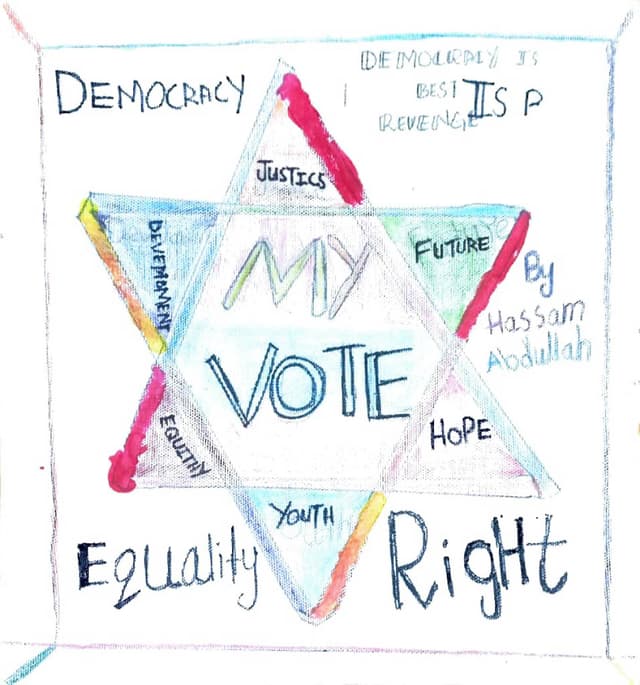 DEMOCRACY
DEMOCRACY IS
BEST
REVEINGE
IS P
JUSTICS
DEVEMOMENT
FUTURE
MY
VOTE
By
Hassam
Abdullah
EQUITHY
HOPE
YOUTH
EQuality
RigHt